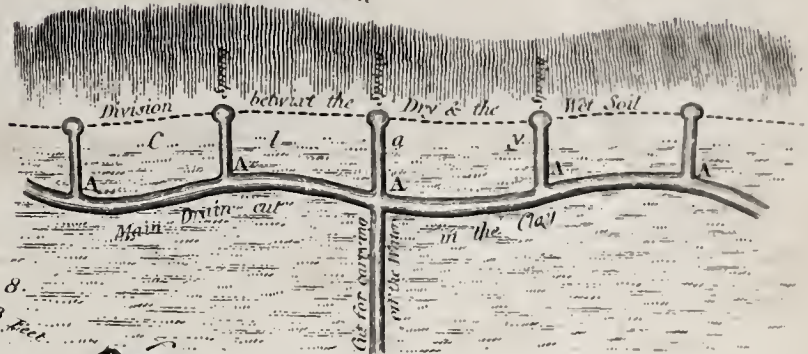 Spring Spring Spring
Division betwixt the Dry & the Wet Soil
C l a y
A A A A A
Main Drain cut in the Clay
Cut for carrying
off the Water
8
Feet